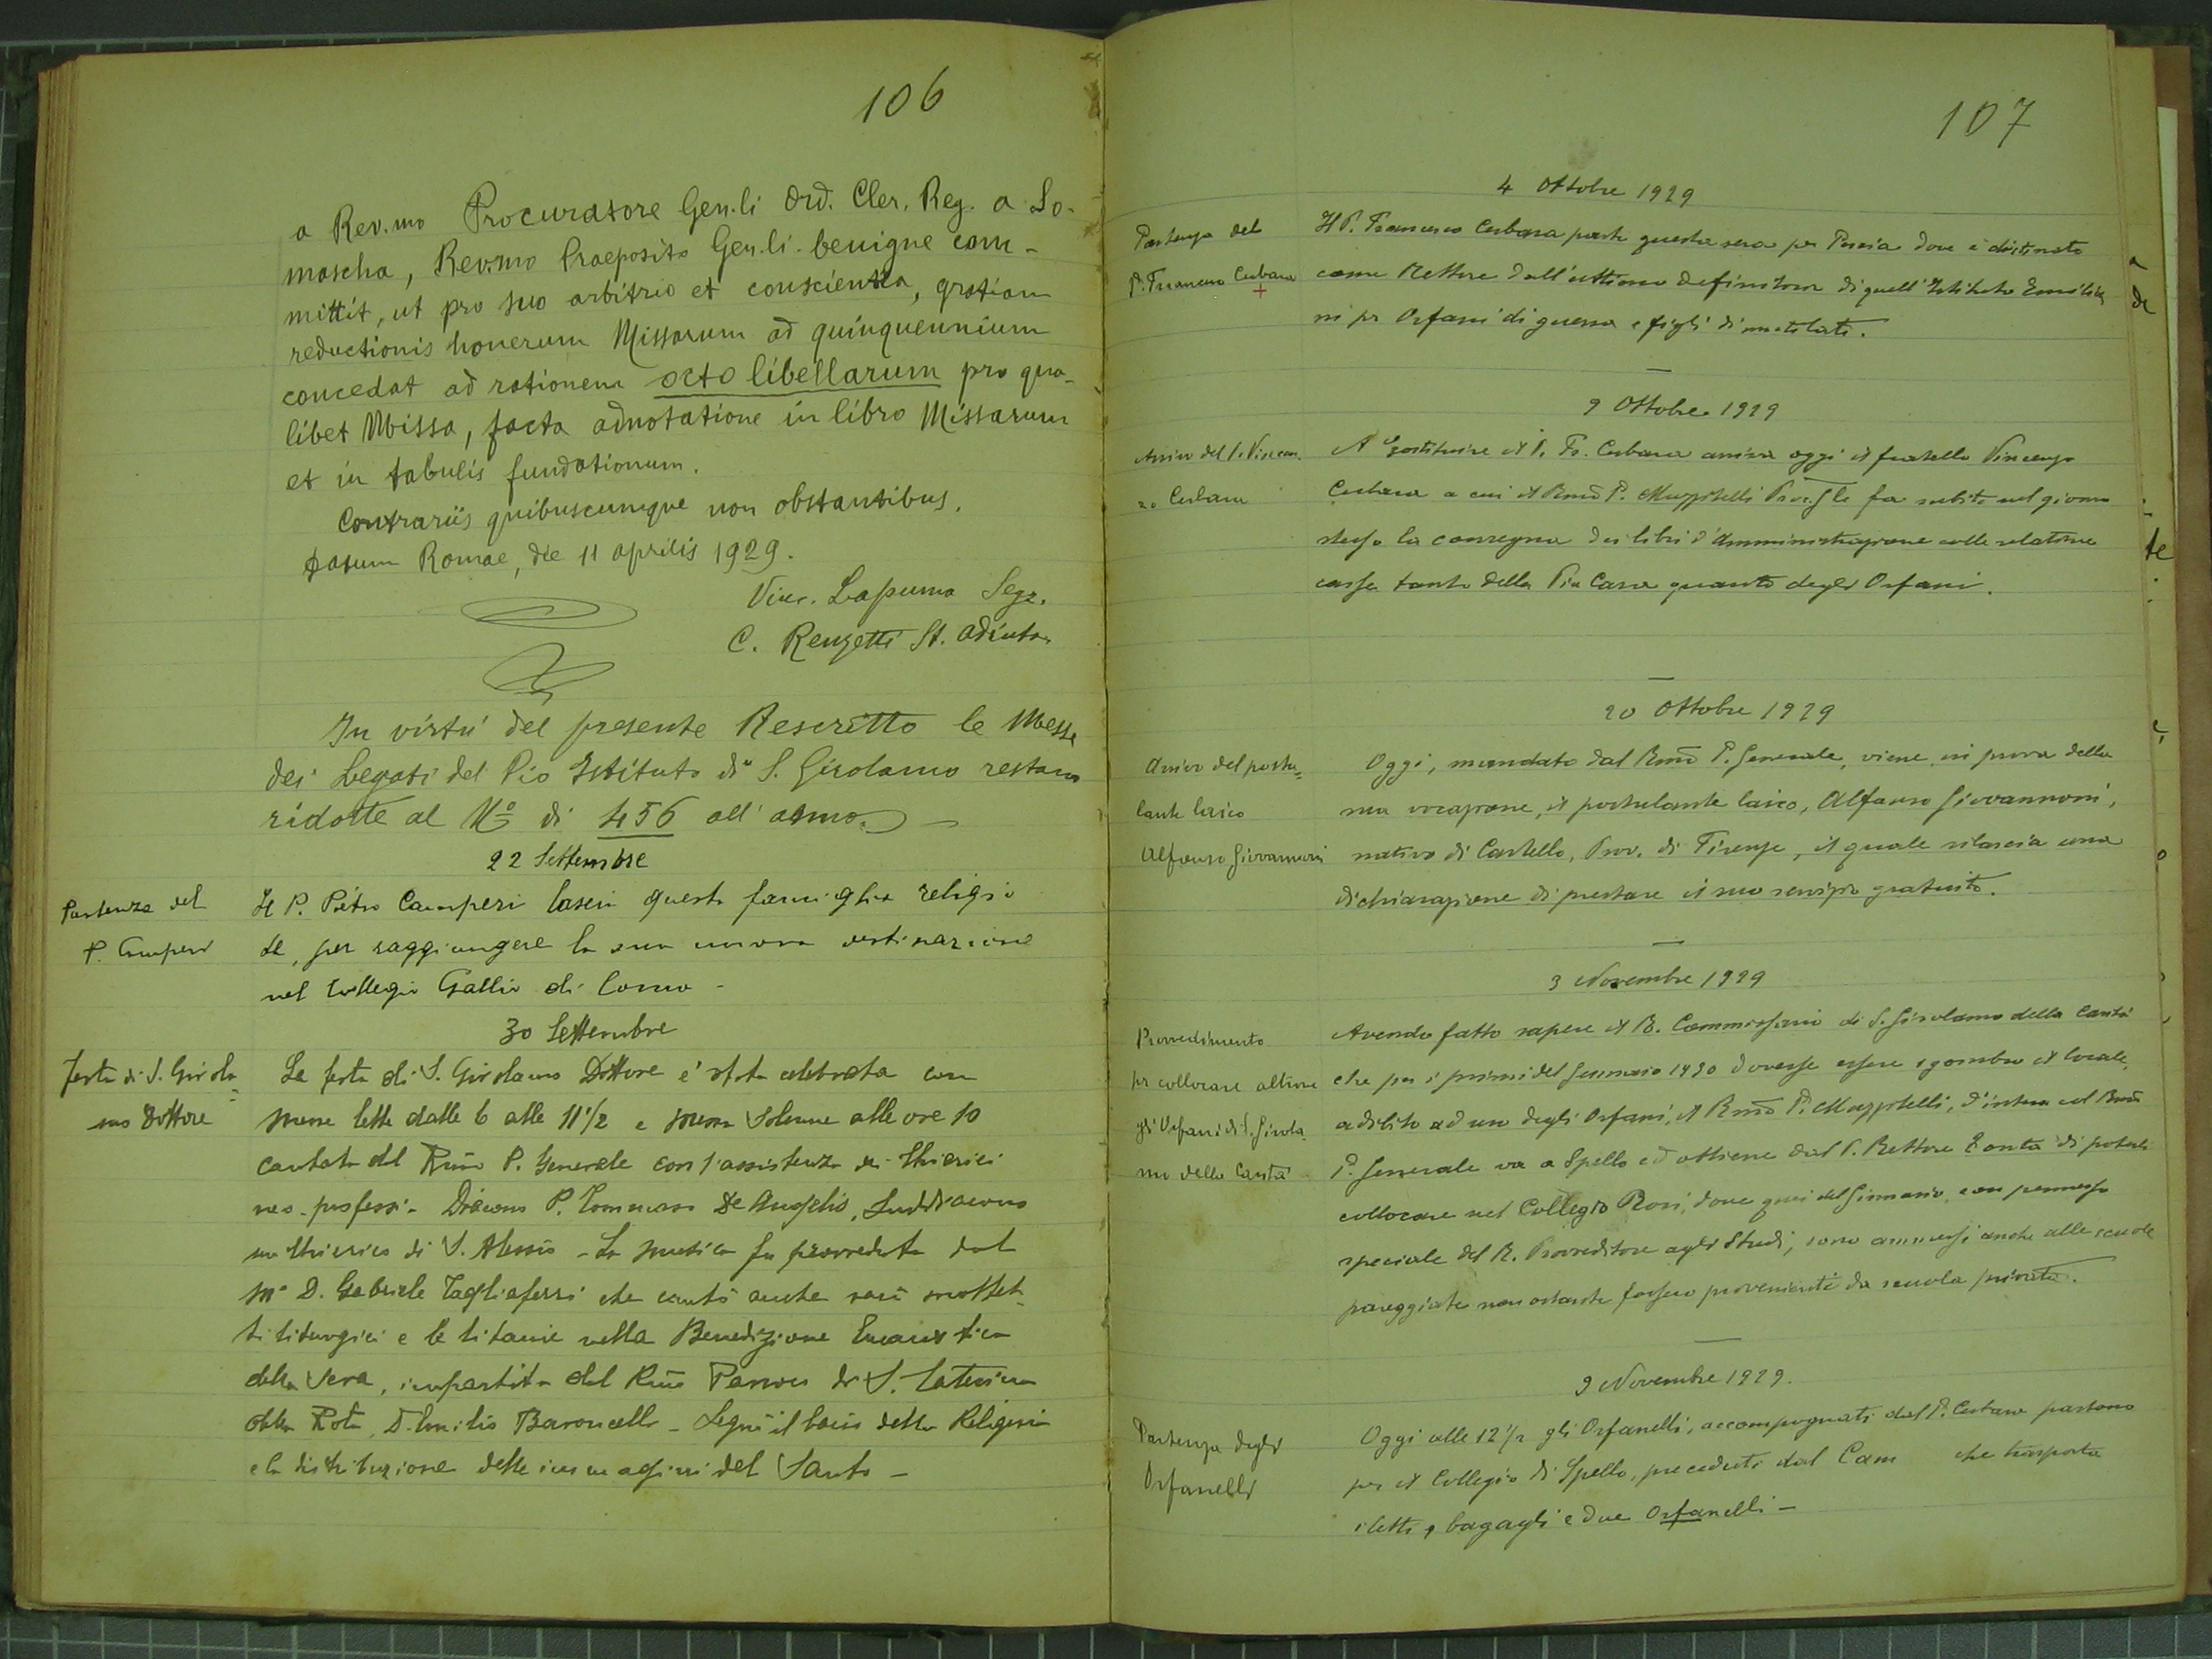 106
a Rev.mo Procuratore Gen.li Ord. Cler. Reg. a So-
mascha, Rev.mo Praeposito Gen.li benigne com-
mittit, ut pro suo arbitrio et conscientia, gratiam
reductionis honerum Missarum ad quinquennium
concedat ad rationem octo libellarum pro qua-
libet Missa, facta adnotatione in libro Missarum
et in tabulis fundationum.
Contrariis quibuscumque non obstantibus.
Datum Romae, die 11 aprilis 1929.
Vinc. Lapuma Segr.
C. Renzetti St. adiutor
In virtù del presente Rescritto le Messe
dei Legati del Pio Istituto di S. Girolamo restano
ridotte al No di 456 all' anno.
22 Settembre
Partenza del
P. Camperi
Il P. Pietro Camperi lascia questa famiglia religio
se, per raggiungere la sua nuova destinazione
nel Collegio Gallio di Como -
30 Settembre
Festa di S. Girola-
mo Dottore
La festa di S. Girolamo Dottore è stata celebrata con
messe lette dalle 6 alle 11 1/2 e messa solenne alle ore 10
cantata dal Rmo P. Generale con l'assistenza dei Chierici
neo-professi - Diacono P. Tommaso De Angelis, Suddiacono
un Chierico di S. Alessio - La musica fu provveduta dal
Mo D. Gabriele Tagliaferri che cantò anche varii mottet-
ti liturgici e le litanie nella Benedizione Eucaristica
della sera, impartita dal Rmo Parroco di S. Caterina
della Rota, D. Emilio Baroncelli - Seguì il bacio della Reliquia
e la distribuzione delle immagini del Santo -
107
4 Ottobre 1929
Partenza del
P. Francesco Cerbara
+
Il P. Francesco Cerbara parte questa sera per Pescia dove è destinato
come Rettore dall'ultimo Definitorio di quell'Istituto Emilia
ni per Orfani di guerra e figli di mutilati.
9 Ottobre 1929
Arrivo del P. Vincen-
zo Cerbara
A sostituire il P. Fr. Cerbara arriva oggi il fratello Vincenzo
Cerbara a cui il Rmo P. Muzzitelli Proc. Gle fa subito nel giorno
stesso la consegna dei libri d'Amministrazione colle relative
casse tanto della Pia Casa quanto degli Orfani.
20 Ottobre 1929
Arrivo del postu-
lante laico
Alfonso Giovannoni
Oggi, mandato dal Rmo P. Generale, viene, in prova della
sua vocazione, il postulante laico, Alfonso Giovannoni,
nativo di Castello, Prov. di Firenze, il quale rilascia una
dichiarazione di prestare il suo servizio gratuito.
3 Novembre 1929
Provvedimento
per collocare altrove
gli Orfani di S. Girola-
mo della Carità
Avendo fatto sapere il R. Commissario di S. Girolamo della Carità
che per i primi del Gennaio 1930 dovesse essere sgombro il locale,
adibito ad uso degli Orfani, il Rmo P. Muzzitelli, d'intesa col Rmo
P. Generale va a Spello ed ottiene dal P. Rettore Zonta di poterli
collocare nel Collegio Rosi, dove quei del Ginnasio, con permesso
speciale del R. Provveditore agli Studi, sono ammessi anche alle scuole
pareggiate non ostante fossero provenienti da scuola privata.
9 Novembre 1929.
Partenza degli
Orfanelli
Oggi alle 12 1/2 gli Orfanelli, accompagnati dal P. Cerbara partono
per il Collegio di Spello, preceduti dal Cam che trasporta
i letti, bagagli e due Orfanelli -